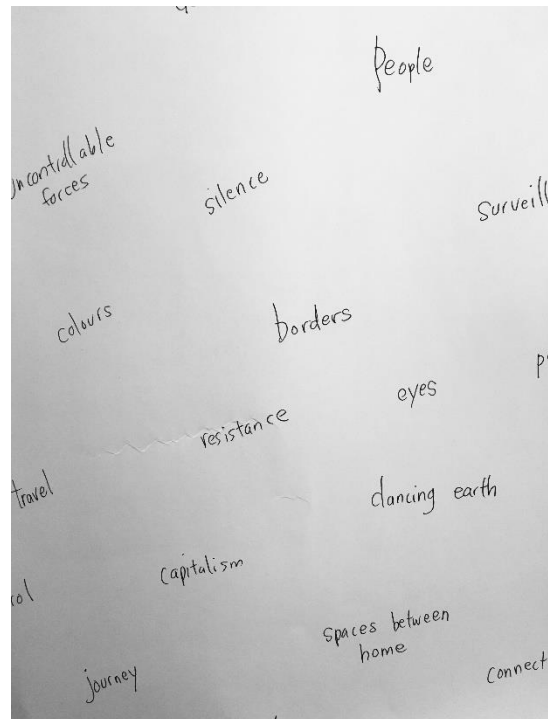 People
uncontrollable
forces
silence
surveill
colours
borders
eyes
resistance
travel
dancing earth
capitalism
rol
spaces between
home
journey
connect